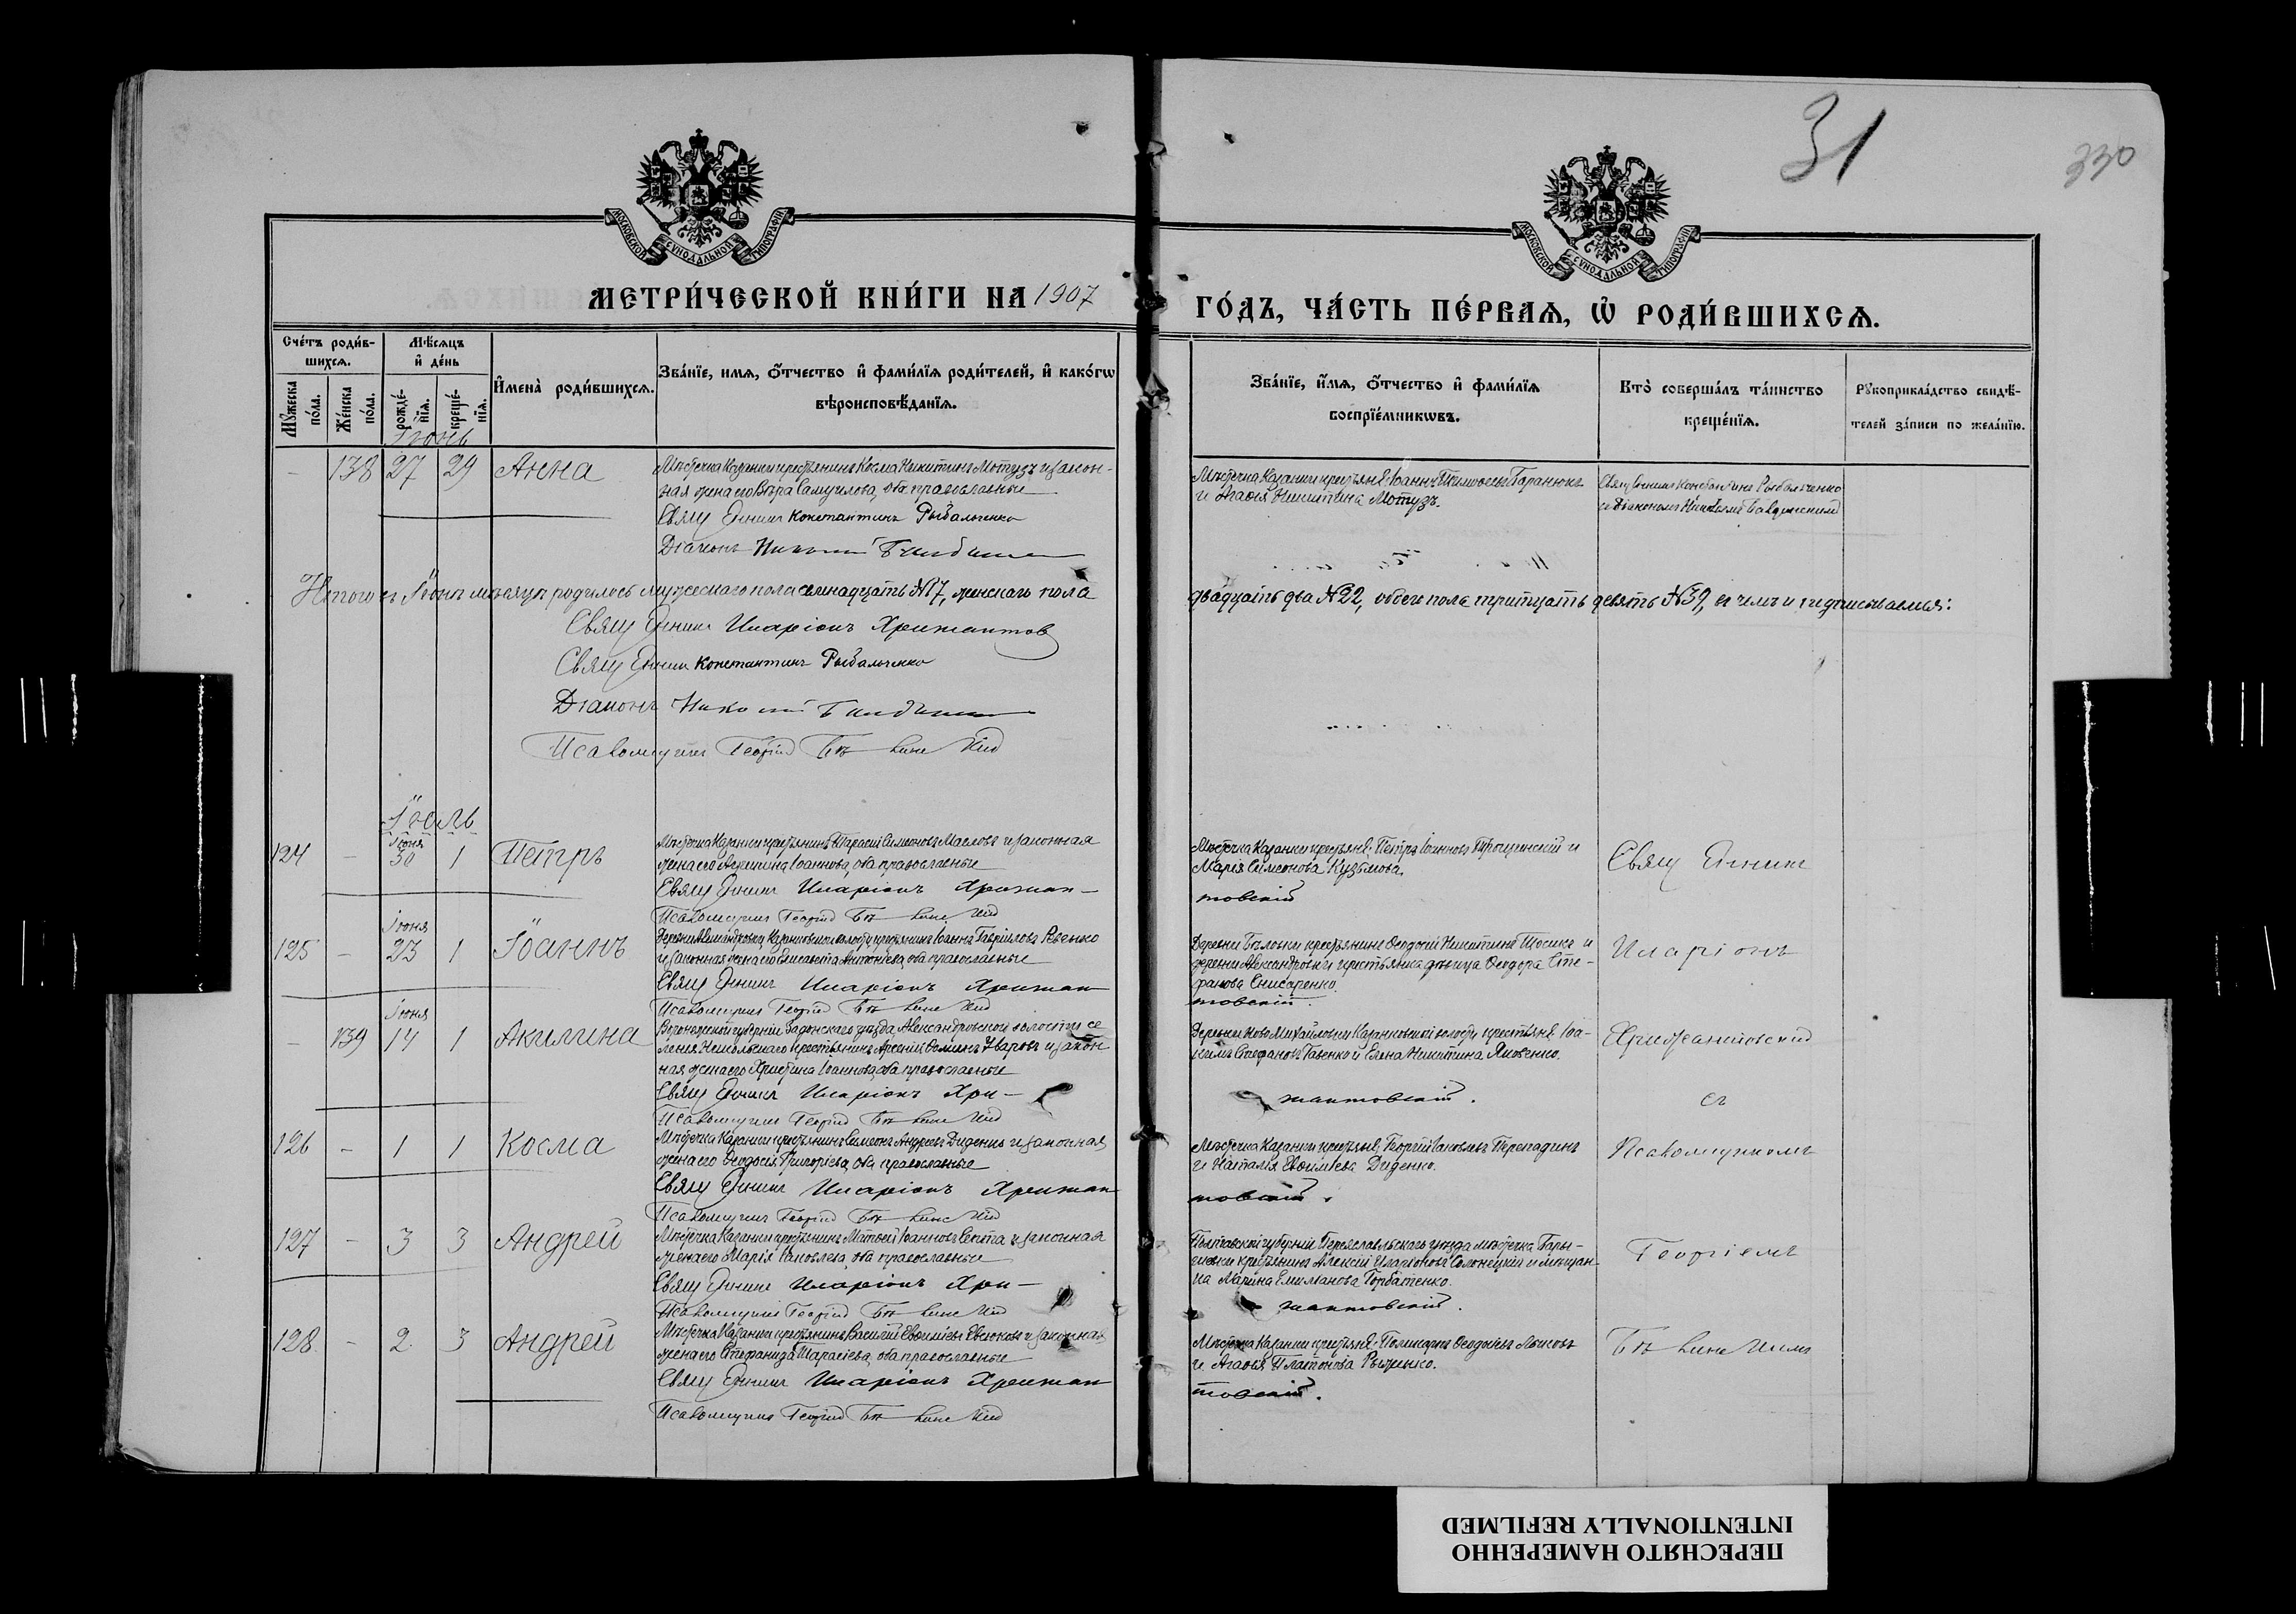 31
330
МОСКОВСКОЙ СѴНОДАЛЬНОЙ ТИПОГРАФІИ
МОСКОВСКОЙ СѴНОДАЛЬНОЙ ТИПОГРАФІИ
МЕТРИ́ЧЕСКОЙ КНИ́ГИ НА 1907 ГО́ДЪ, ЧА́СТЬ ПЕ́РВАѦ, Ѡ҆ РОДИ́ВШИХСѦ.
Сче́тъ роди́в-
шихсѧ.
Мꙋ́жеска по́ла.
Же́нска по́ла.
Мѣ́сѧцъ
и҆ де́нь
рожде́-
нїѧ.
креще́-
нїѧ.
И҆мена̀ роди́вшихсѧ.
Зва́нїе, имѧ, ѻ҆́тчество и҆ фами́лїѧ роди́телей, и҆ како́гѡ
вѣроисповѣ́данїѧ.
Зва́нїе, и҆́мѧ, ѻ҆́тчество и҆ фами́лїѧ
воспрїе́мникѡвъ.
Кто̀ соверша́лъ та́инство
креще́нїѧ.
Рꙋкоприкла́дство свидѣ́-
телей за́писи по жела́нїю.
Іюнь
- 138 27 29 Анна
Мѣстечка Казанки крестьянинъ Косма Никитинъ Мотузъ и закон-
ная жена его Вѣра Самуилова, оба православные
Священникъ Константинъ Рыбальченко
Діаконъ Николай
Мѣстечка Казанки крестьяне: Іоаннъ Тимоѳеевъ Таранюкъ
и Агаѳія Никитина Мотузъ.
Священникъ Константинъ Рыбальченко
съ Діакономъ Николаемъ
Итого въ Іюнѣ мѣсяцѣ родилось мужескаго пола семнадцать №17, женскаго пола
двадцать два №22, обоего пола тритцать девять №39, въ чемъ и подписываемся:
Священникъ Иларіонъ Хрисантов
Священник Константинъ Рыбальченко
Діаконъ Николай
Псаломщикъ Георгій
Іюль
124 - Іюня 30 1 Петръ
Мѣстечка Казанки крестьянинъ Тарасій Симеоновъ Масловъ и законная
жена его Акилина Іоаннова, оба православные
Священникъ Иларіонъ Хрисан-
товскій
Псаломщикъ Георгій
Мѣстечка Казанки крестьяне: Петръ Іоанновъ Трощинскій и
Марія Симеонова Кузьмова.
Священникъ
125 - Іюня 23 1 Іоаннъ
Деревни Александровки, Казанковской волости, крестьянинъ Іоаннъ Гавріиловъ Ряенко
и законная жена его Елисавета Антоніева, оба православные
Священникъ Иларіонъ Хрисан
товскій.
Псаломщикъ Георгій
Деревни Бѣловки крестьянинъ Ѳеодосій Никитинъ и
деревни Александровки крестьянка дѣвица Ѳеодора Сте-
фанова Снисаренко.
Иларіонъ
- 139 Іюня 14 1 Акилина
Воронежской губерніи Задонскаго уѣзда, Александровской волости се
ленія Никольскаго крестьянинъ Арсеній Ѳоминъ Уваровъ и закон
ная жена его Христина Іоаннова, оба православные
Священникъ Иларіонъ Хри-
сантовскій.
Псаломщикъ Георгій
Деревни Ново Михайловки Казанковской волости крестьяне: Іоа-
кимъ Стефановъ Гаенко и Елена Никитина Яковенко.
Хрисантовскій
съ
126 - 1 1 Косма
Мѣстечка Казанки крестьянинъ Симеонъ Андреевъ Диденко и законная
жена его Ѳеодосія Григоріева, оба православные
Священникъ Иларіонъ Хрисан
товскій.
Псаломщикъ Георгій
Мѣстечка Казанки крестьяне: Георгій Іаковлевъ Перепадинъ
и Наталія Евѳиміева Диденко.
Псаломщикомъ
127 - 3 3 Андрей
Мѣстечка Казанки крестьянинъ Матѳей Іоанновъ Септа и законная
жена его Марія Іаковлева, оба православные
Священникъ Иларіонъ Хри-
сантовскій.
Псаломщикъ Георгій
Полтавской губерніи Переяславльскаго уѣзда мѣстечка Бары-
шевки крестьянинъ Алексій Иларіоновъ Солонецкій и мѣщан
ка Марина Емиліанова Горбатенко.
Георгіемъ
128. - 2. 3 Андрей
Мѣстечка Казанки крестьянинъ Василій Евѳиміевъ Евсюковъ и законная
жена его Стефанида Тарасіева, оба православные
Священникъ Иларіонъ Хрисан
товскій.
Псаломщикъ Георгій
Мѣстечка Казанки крестьяне: Поликарпъ Ѳеодоровъ Лысовъ
и Агаѳія Платонова Рыженко.
ПЕРЕСНЯТО НАМЕРЕННО
INTENTIONALLY REFILMED